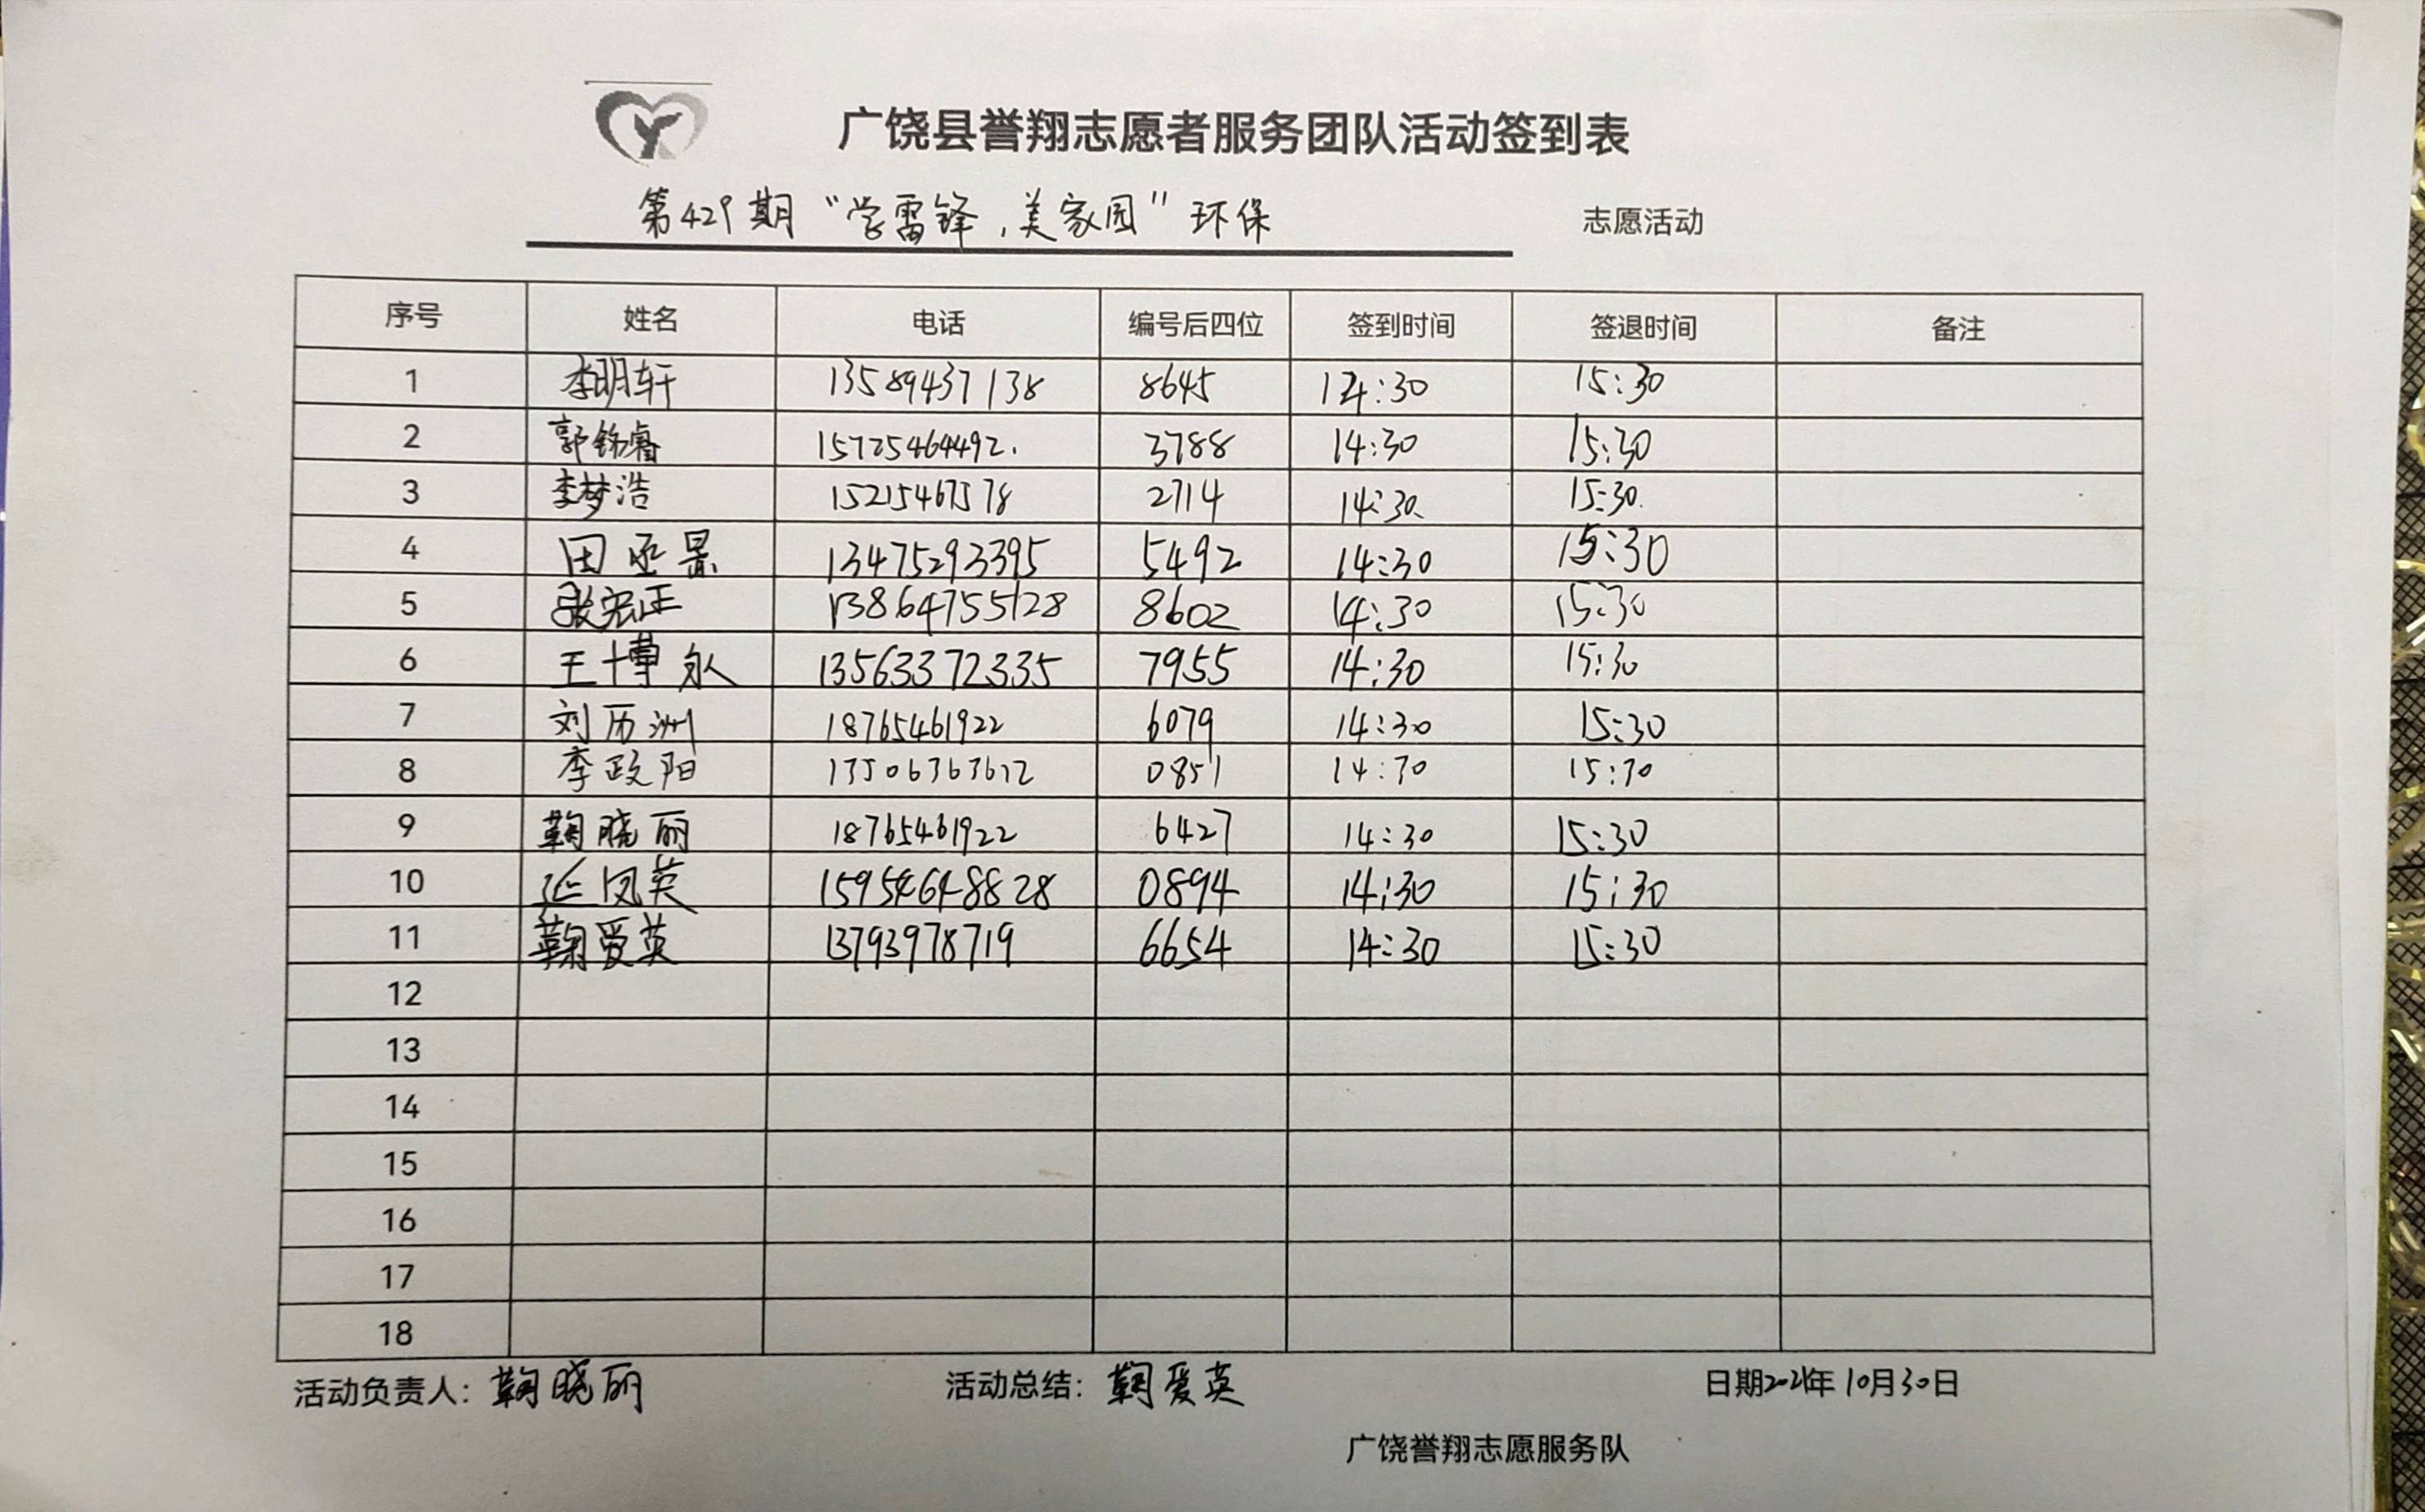 广饶县誉翔志愿者服务团队活动签到表
第429期“学雷锋,美家园”环保 志愿活动
序号 姓名 电话 编号后四位 签到时间 签退时间 备注
1 李明轩 13589437138 8645 14:30 15:30
2 郭铭睿 15725464492. 3788 14:30 15:30
3 李梦浩 15215467578 2714 14:30 15:30
4 田丞景 13475293395 5492 14:30 15:30
5 张宏正 13864755128 8602 14:30 15:30
6 王博 13563372335 7955 14:30 15:30
7 刘历洲 18765461922 6079 14:30 15:30
8 李政阳 13506363612 0851 14:30 15:30
9 鞠晓丽 18765461922 6427 14:30 15:30
10 延凤英 15954648828 0894 14:30 15:30
11 鞠爱英 13793978719 6654 14:30 15:30
12
13
14
15
16
17
18
活动负责人: 鞠晓丽 活动总结: 鞠爱英 日期 年10月30日
广饶誉翔志愿服务队